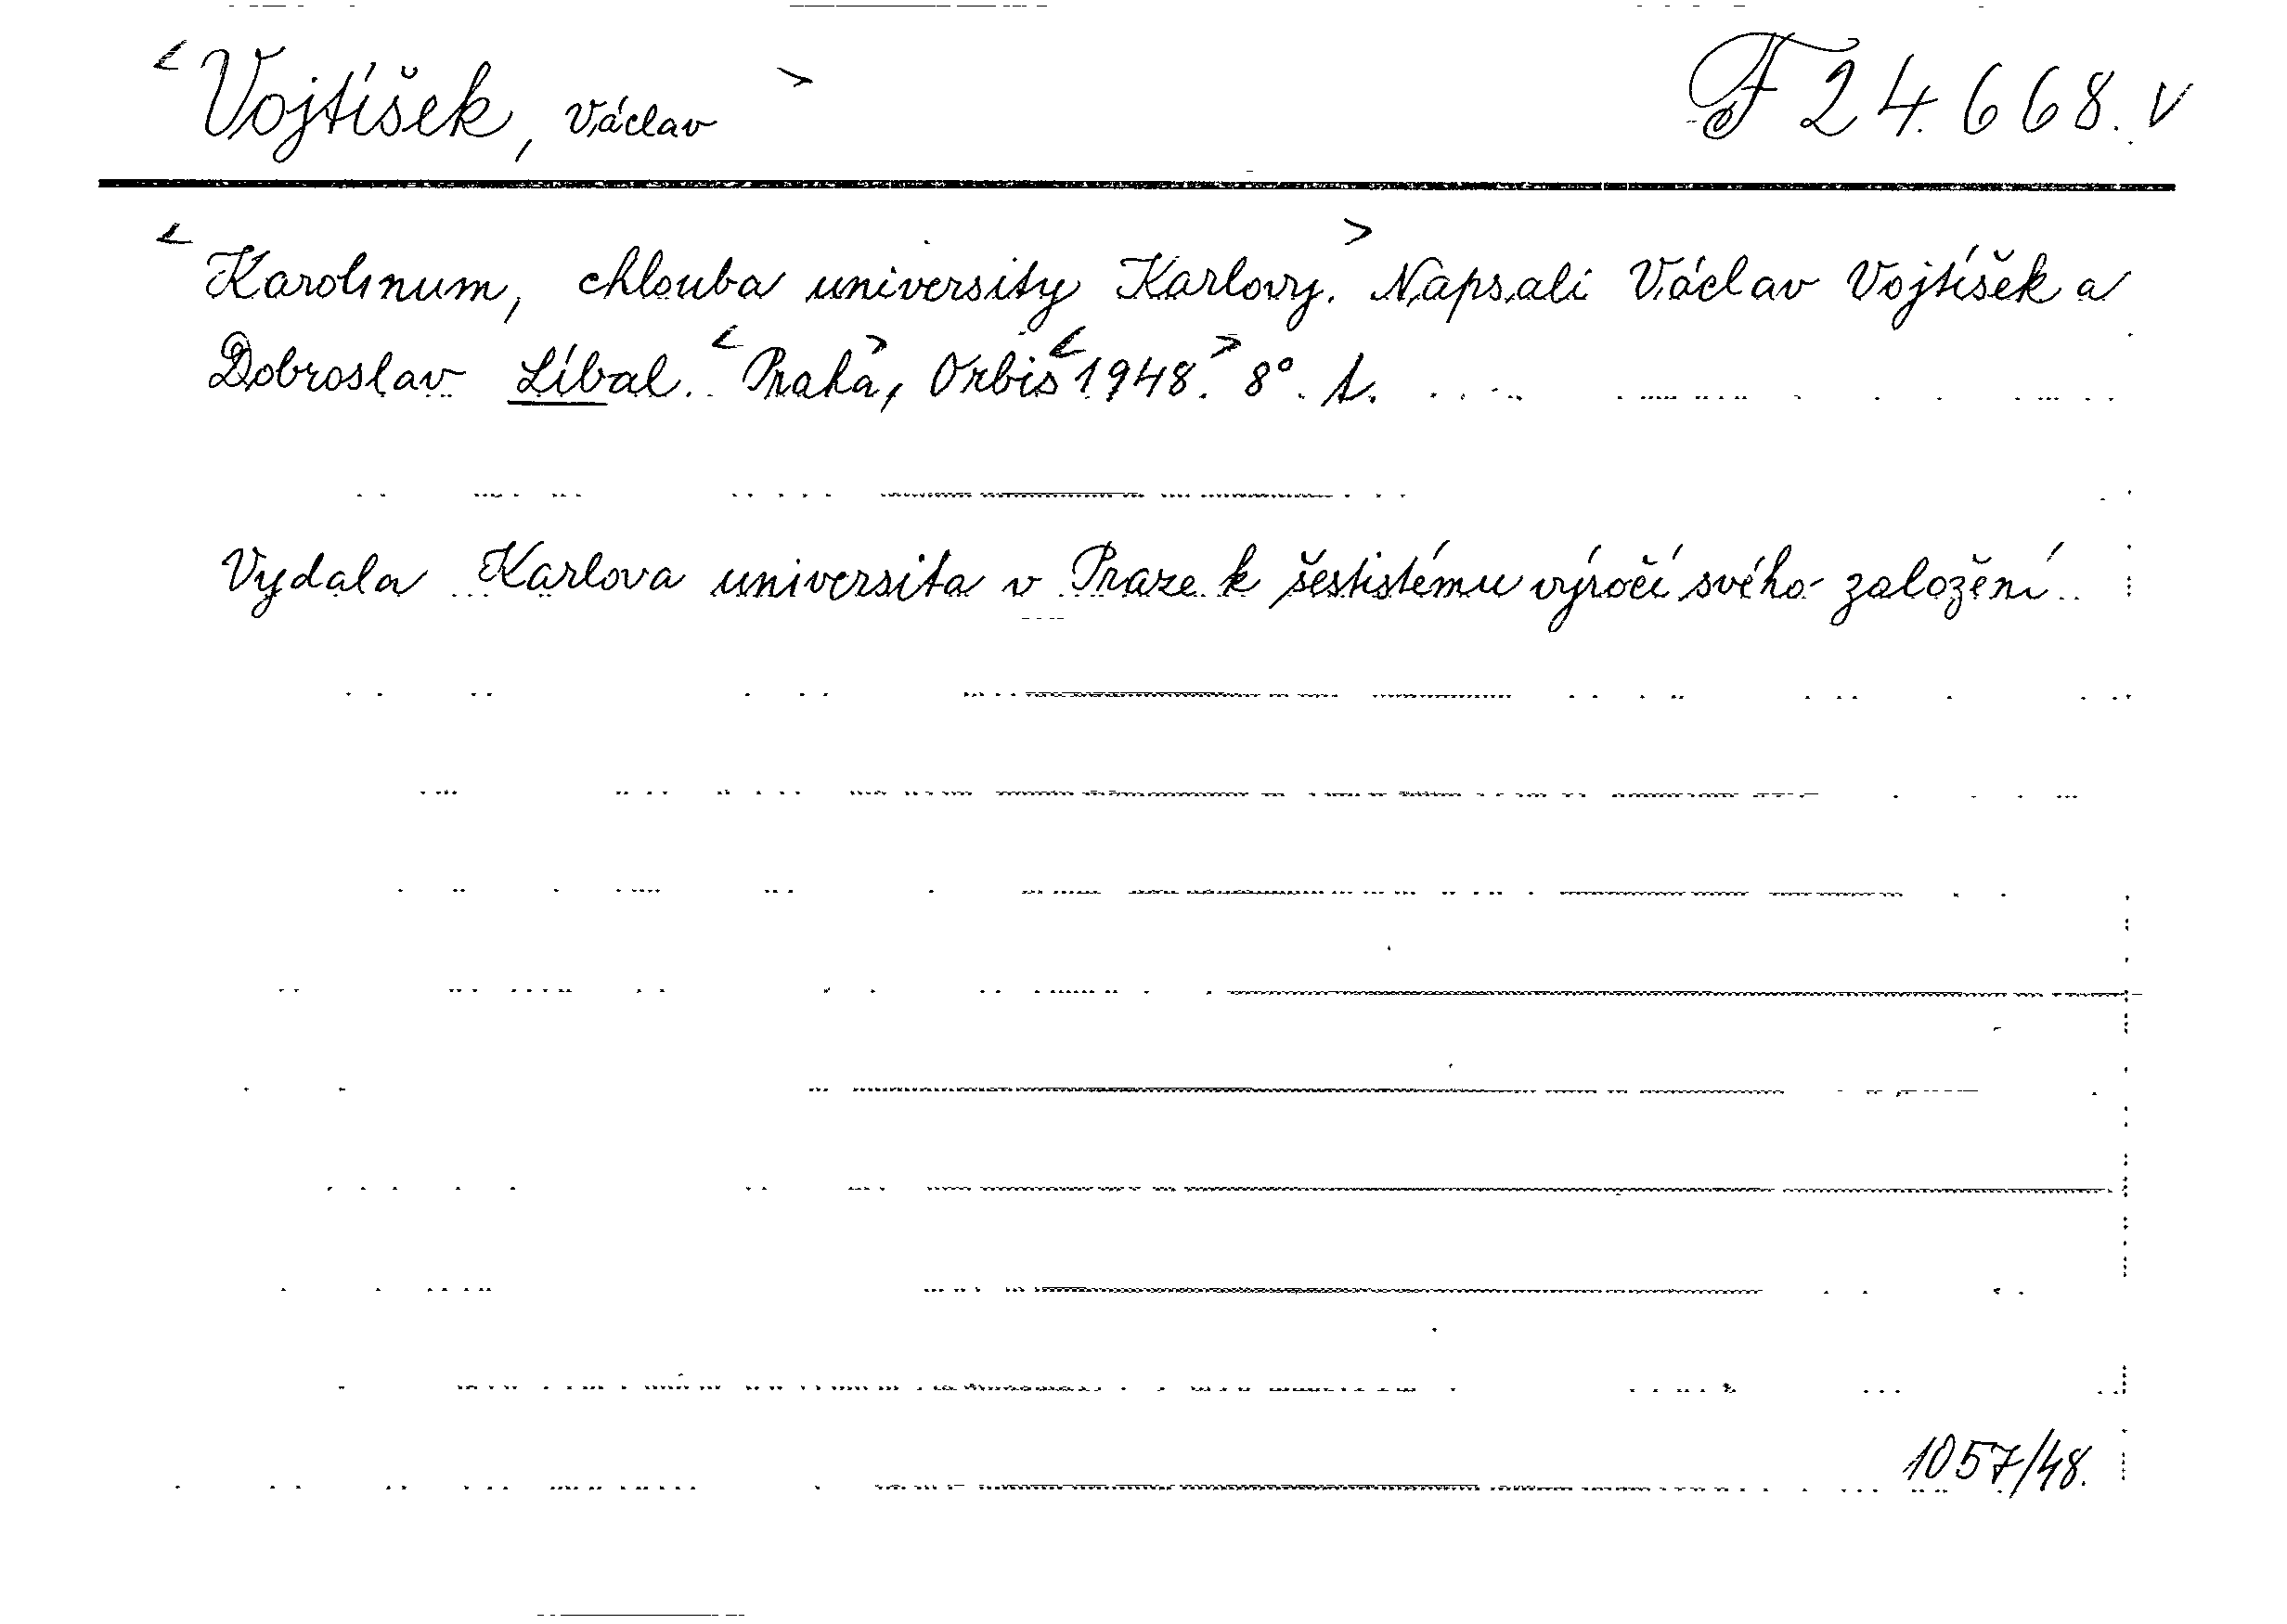 <Vojtíšek, Václav> F 24.668. v
<Karolinum, chlouba university Karlovy.> Napsali Václav Vojtíšek a
Dobroslav Líbal. <Praha>, Orbis <1948.> 8°. A.
Vydala Karlova universita v Praze k šestistému výročí svého založení.
1057/48.